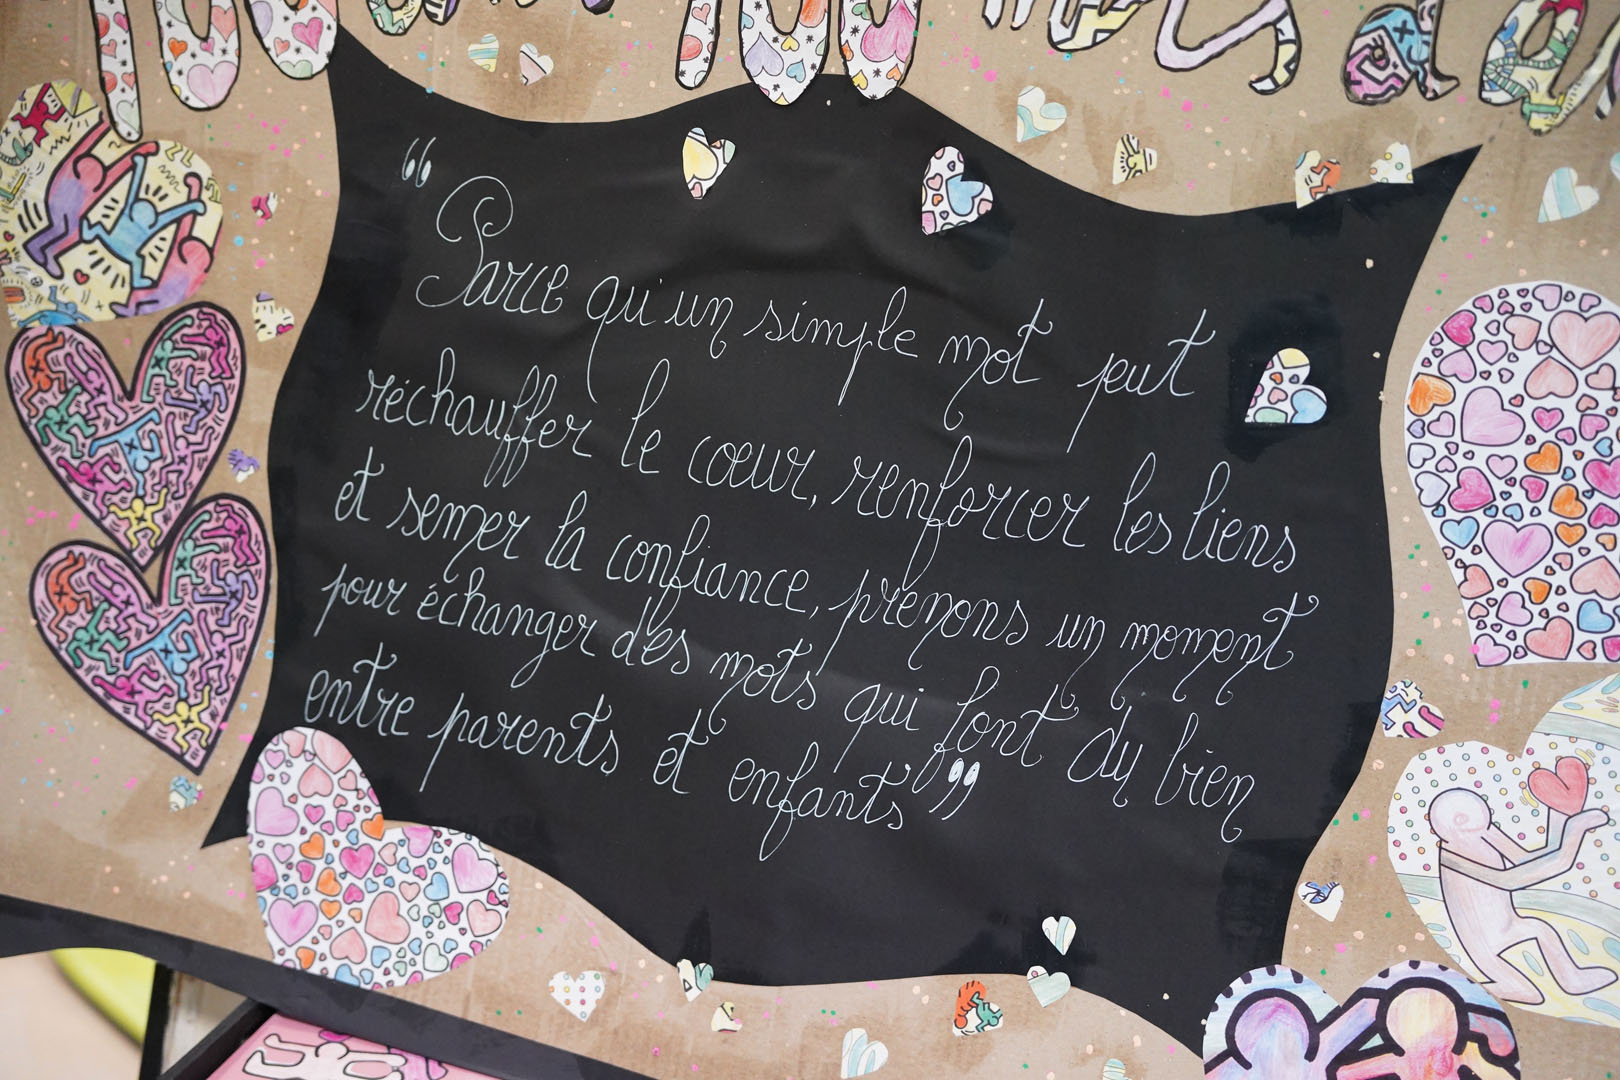 “Parce qu'un simple mot peut
réchauffer le cœur, renforcer les liens
et semer la confiance, prenons un moment
pour échanger des mots qui font du bien
entre parents et enfants”